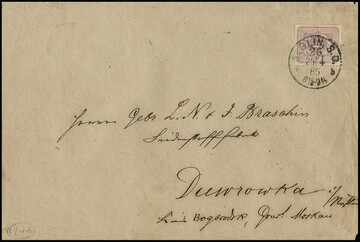 BERLIN S.O.
26
4
85
Herren Gebr. L. N. & J. Braschnin
Seidenstofffabrik
Duwrowka
Kreis Bogorodsk, Gouv. Moskau